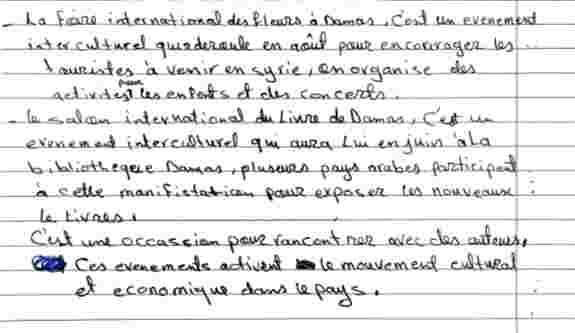 - La foire international des fleurs à Damas, C'est un evenement
interculturel qui deroule en août pour encourager les
touristes à venir en syrie, on organise des
activites pour les enfants et des concerts.
- le salon international du Livre de Damas, C'est un
evenement interculturel qui aura Lui en juin à La
bibliothegeue Damas, plusieurs pays arabes participent
à cette manifistation pour exposer les nouveaux
le Livres.
C'est une occassion pour rancontrer avec des auteurs,
Ces evenements activent le mouvement cultural
et economique dans le pays.